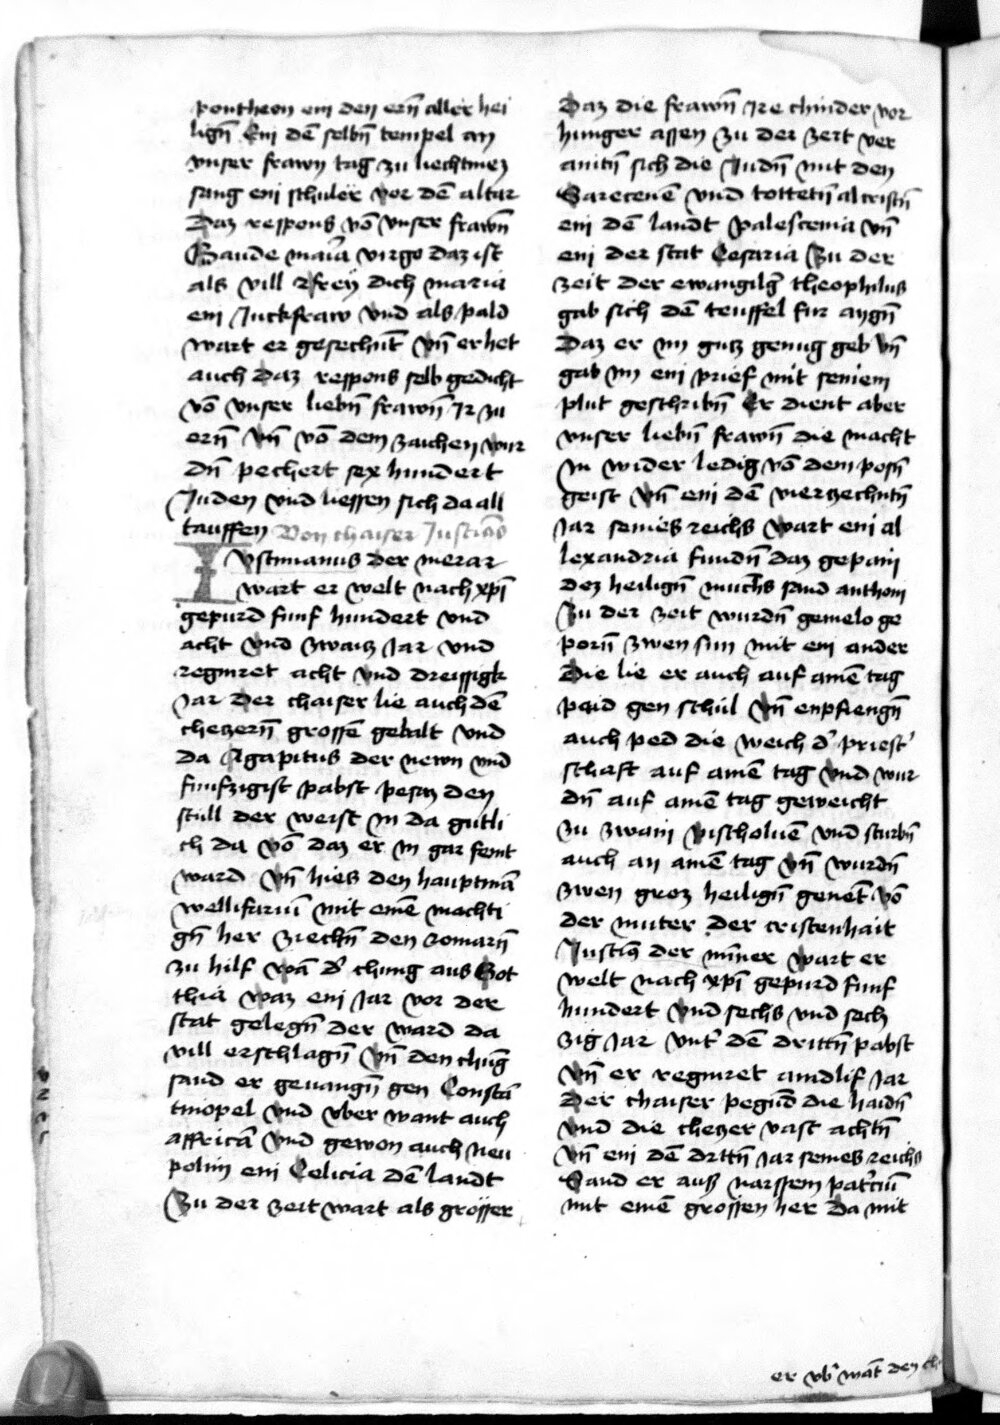 pontheon ein den ern̄ aller hei
lign̄ Ein dē selbn̄ tempel an
vnser frawn tag zu liechtmez
sang ein schuler vor dē altar
Daz respons vō vnser frawn̄
Gaude maria virgo daz ist
als vill frey dich maria
ein Juckfraw vnd als pald
wart er gesechnt̄ vn̄ er het
auch daz respons selb gedicht
vō vnser liebn̄ frawn̄ Ir zu
ern̄ vn̄ vō dem zaichen wur
dn̄ pechert sex hundert
Juden vnd liessen sich da all
tauffen Von chaiser Justians
IVstinianus der merar
wart er welt nach xp̄i
gepurd funf hundert vnd
acht vnd zwaiz Jar vnd
regniret acht vnd dreissigk
Jar der chaiser lie auch dē
checzern̄ grossē gebalt vnd
da Agapitus der newn vnd
funfzigist pabst pesaz den
stull der weist in da gutli
ch da vō daz er in gar feint
ward vn̄ hies den hauptmā
wellifariū mit einē machti
gn̄ her ziechn̄ den romarn̄
zu hilf wā d' chung aus Got
thia waz ein Jar vor der
stat gelegn̄ der ward da
vill erschlagn̄ vn̄ den chūg
sand er geuangn̄ gen Constā
tinopel vnd vber want auch
affricā vnd gewon auch neu
polim ein Celicia dē landt
Zu der zeit wart als grosser
Daz die frawn̄ Ire chinder vor
hunger assen Zu der zeit ver
anitn̄ sich die Judn̄ mit den
Sarecenē vnd tottetn̄ al cristn̄
ein dē landt palestenia vn̄
ein der stat Cesaria Zu der
zeit der ewangilḡ theophilus
gab sich dē teuffel fur aygn̄
Daz er im gutz genug geb vn̄
gab im ein prief mit seniem
plut geschribn̄ Er dient aber
vnser liebn̄ frawn̄ die macht
in wider ledig vō dem posn̄
geist vn̄ ein dē vierzechntn̄
Jar seines reichs wart ein al
lexandria fundn̄ daz gepain
dez heilign̄ muchs sand anthoni
Zu der zeit wurdn̄ gemelo ge
porn̄ zwen sun mit ein ander
Die lie er auch auf ainē tag
paid gen schul vn̄ enpfiengn̄
auch ped die weich d' priest'
schaft auf ainē tag vnd wur
dn̄ auf ainē tag geweicht
zu zwain pischoluē vnd sturbn̄
auch an ainē tag vn̄ wurdn̄
zwen groz heilign̄ genēt vō
der muter der cristenhait
Justins der minner wart er
welt nach xp̄i gepurd funf
hundert vnd sechs vnd sech
zig Jar vnt' dē drittn̄ pabst
vn̄ er regniret aindlif Jar
Der chaiser pegūd die haidn̄
vnd die checzer vast achtn̄
vn̄ ein dē drttn̄ Jar seines reichs
Sand er auz narssem pat'ciū
mit einē grossen her da mit
er vb' wāt den